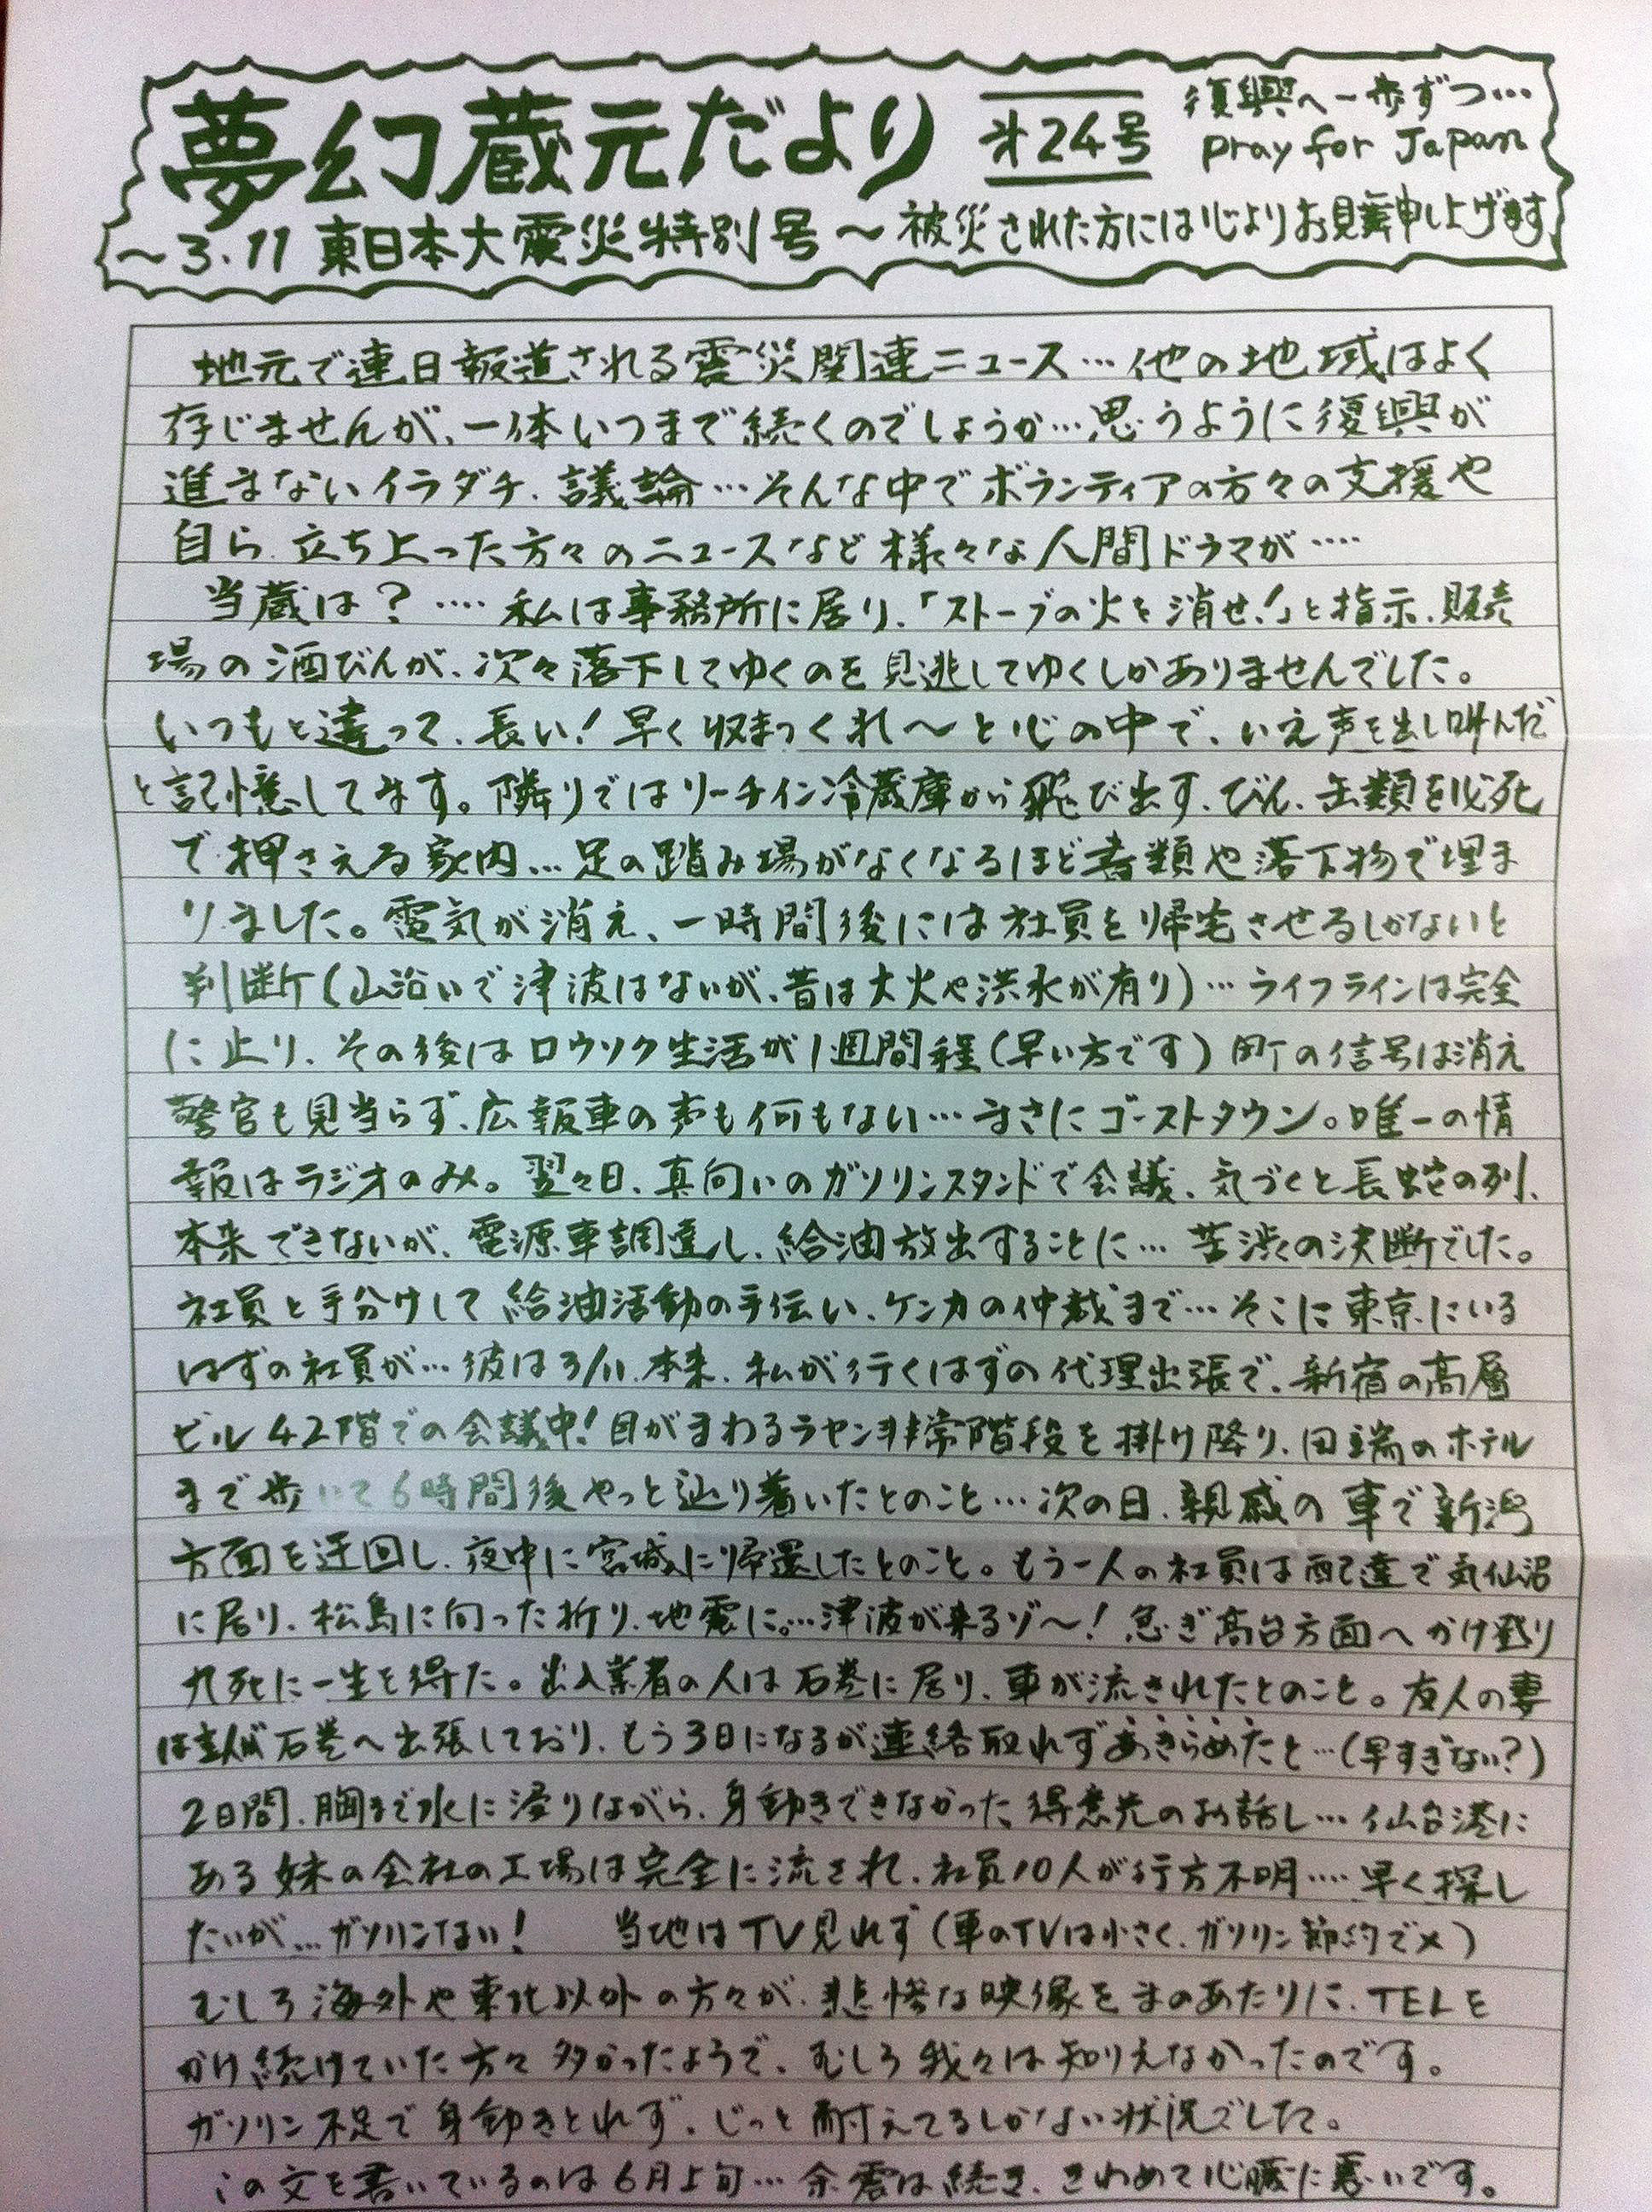 夢幻蔵元だより 第24号 復興へ一歩ずつ…
pray for Japan
～3.11 東日本大震災特別号～被災された方には心よりお見舞申し上げます
地元で連日報道される震災関連ニュース…他の地域はよく
存じませんが、一体いつまで続くのでしょうか…思うように復興が
進まないイラダチ、議論…そんな中でボランティアの方々の支援や
自ら立ち上った方々のニュースなど様々な人間ドラマが‥‥
当蔵は？‥‥私は事務所に居り、「ストーブの火を消せ！」と指示、販売
場の酒びんが、次々落下してゆくのを見逃してゆくしかありませんでした。
いつもと違って、長い！早く収まっくれ～と心の中で、いえ声を出し叫んだ
と記憶してます。隣りではリーチイン冷蔵庫から飛び出す、びん、缶類を必死
で押さえる家内…足の踏み場がなくなるほど書類や落下物で埋ま
りました。電気が消え、一時間後には社員を帰宅させるしかないと
判断（山沿いで津波はないが、昔は大火や洪水が有り）…ライフラインは完全
に止り、その後はロウソク生活が1週間程（早い方です）町の信号は消え
警官も見当らず、広報車の声も何もない…まさにゴーストタウン。唯一の情
報はラジオのみ。翌々日、真向いのガソリンスタンドで会議、気づくと長蛇の列、
本来できないが、電源車調達し、給油放出することに…苦渋の決断でした。
社員と手分けして給油活動の手伝い、ケンカの仲裁まで…そこに東京にいる
はずの社員が…彼は3/11、本来、私が行くはずの代理出張で、新宿の高層
ビル42階での会議中！目がまわるラセン非常階段を掛け降り、田端のホテル
まで歩いて6時間後やっと辿り着いたとのこと…次の日、親戚の車で新潟
方面を迂回し、夜中に宮城に帰還したとのこと。もう一人の社員は配達で気仙沼
に居り、松島に向った折り、地震に。…津波が来るゾ～！急ぎ高台方面へかけ登り
九死に一生を得た。出入業者の人は石巻に居り、車が流されたとのこと。友人の妻
は主人が石巻へ出張しており、もう3日になるが連絡取れずあきらめたと…（早すぎない？）
2日間、胸まで水に浸りながら、身動きできなかった得意先のお話し…仙台港に
ある妹の会社の工場は完全に流され、社員10人が行方不明‥‥早く探し
たいが…ガソリンない！　当地はTV見れず（車のTVは小さく、ガソリン節約で×）
むしろ海外や東北以外の方々が、悲惨な映像をまのあたりに、TELを
かけ続けていた方々多かったようで、むしろ我々は知りえなかったのです。
ガソリン不足で身動きとれず、じっと耐えてるしかない状況でした。
この文を書いているのは6月上旬…余震は続き、きわめて心臓に悪いです。